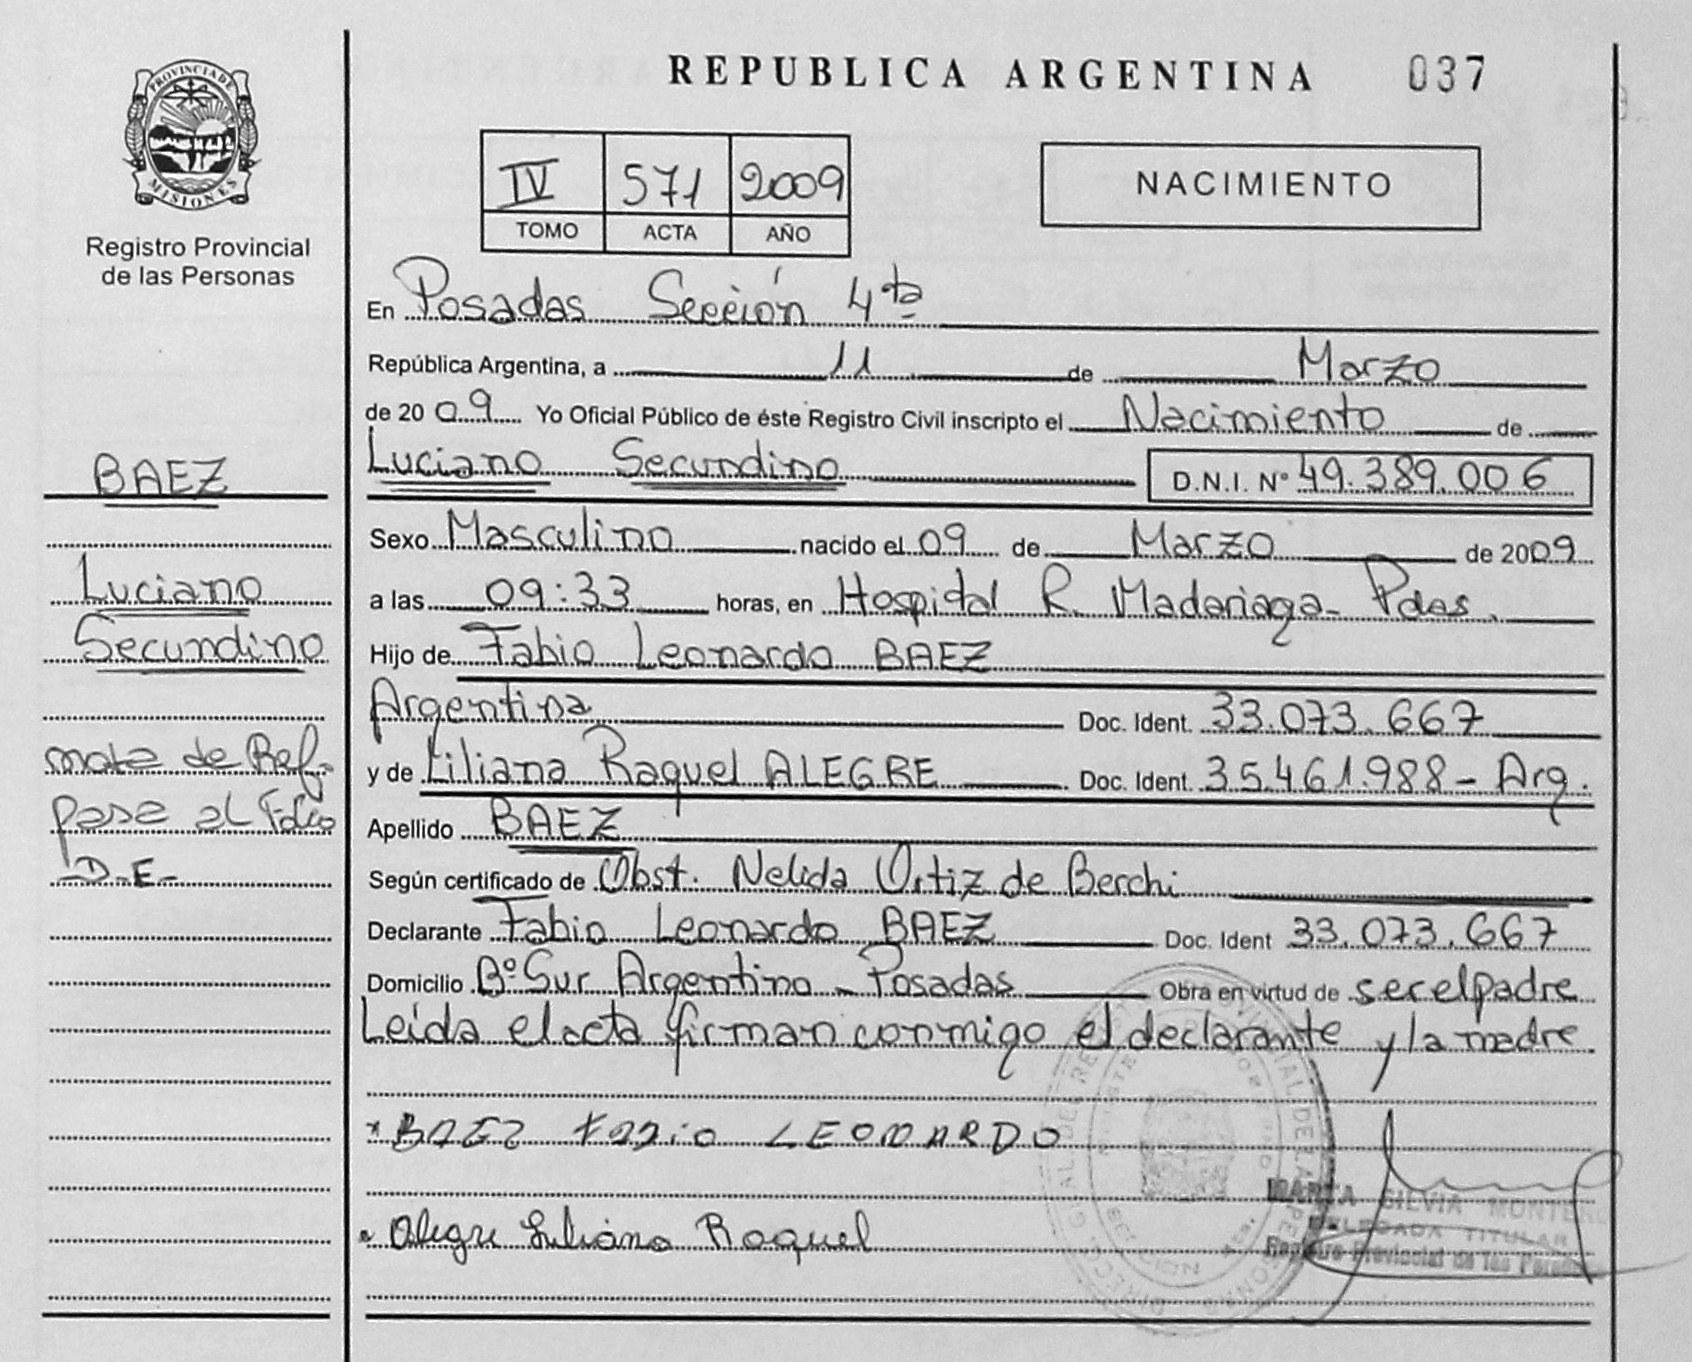 REPUBLICA ARGENTINA 037
PROVINCIA DE MISIONES
Registro Provincial
de las Personas
IV 571 2009
TOMO ACTA AÑO
NACIMIENTO
En Posadas Sección 4ta
República Argentina, a 11 de Marzo
de 2009 Yo Oficial Público de éste Registro Civil inscripto el Nacimiento de
Luciano Secundino D.N.I. Nº 49.389.006
Sexo Masculino nacido el 09 de Marzo de 2009
a las 09:33 horas, en Hospital R. Madariaga - Pdas.
Hijo de Fabio Leonardo BAEZ
Argentina Doc. Ident. 33.073.667
y de Liliana Raquel ALEGRE Doc. Ident. 35.461.988 - Arg.
Apellido BAEZ
Según certificado de Obst. Nelida Ortiz de Berchi
Declarante Fabio Leonardo BAEZ Doc. Ident 33.073.667
Domicilio Bº Sur Argentino - Posadas Obra en virtud de ser el padre
Leída el acta firman conmigo el declarante y la madre
BAEZ Fabio LEONARDO
Alegre Liliana Raquel
MARTA SILVIA MONTERO
DELEGADA TITULAR
Registro Provincial de las Personas
BAEZ
Luciano
Secundino
nota de Ref.
pasa al Folio
D.E.